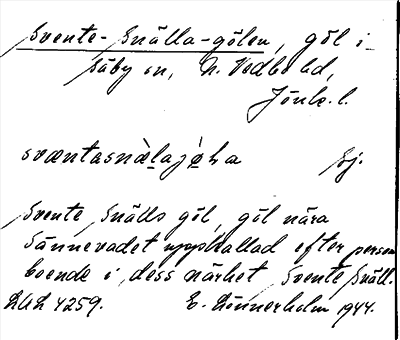 Svente-Snälla-gölen, göl i
Säby sn, N. Vedbo hd,
Jönk. l.
svæntasnæ̀lajɵ́la Sj.
Svente Snälls göl, göl nära
Sännevadet uppkallad efter person
boende i dess närhet Svente Snäll.
LUL 4259. E. Lönnerholm 1944.